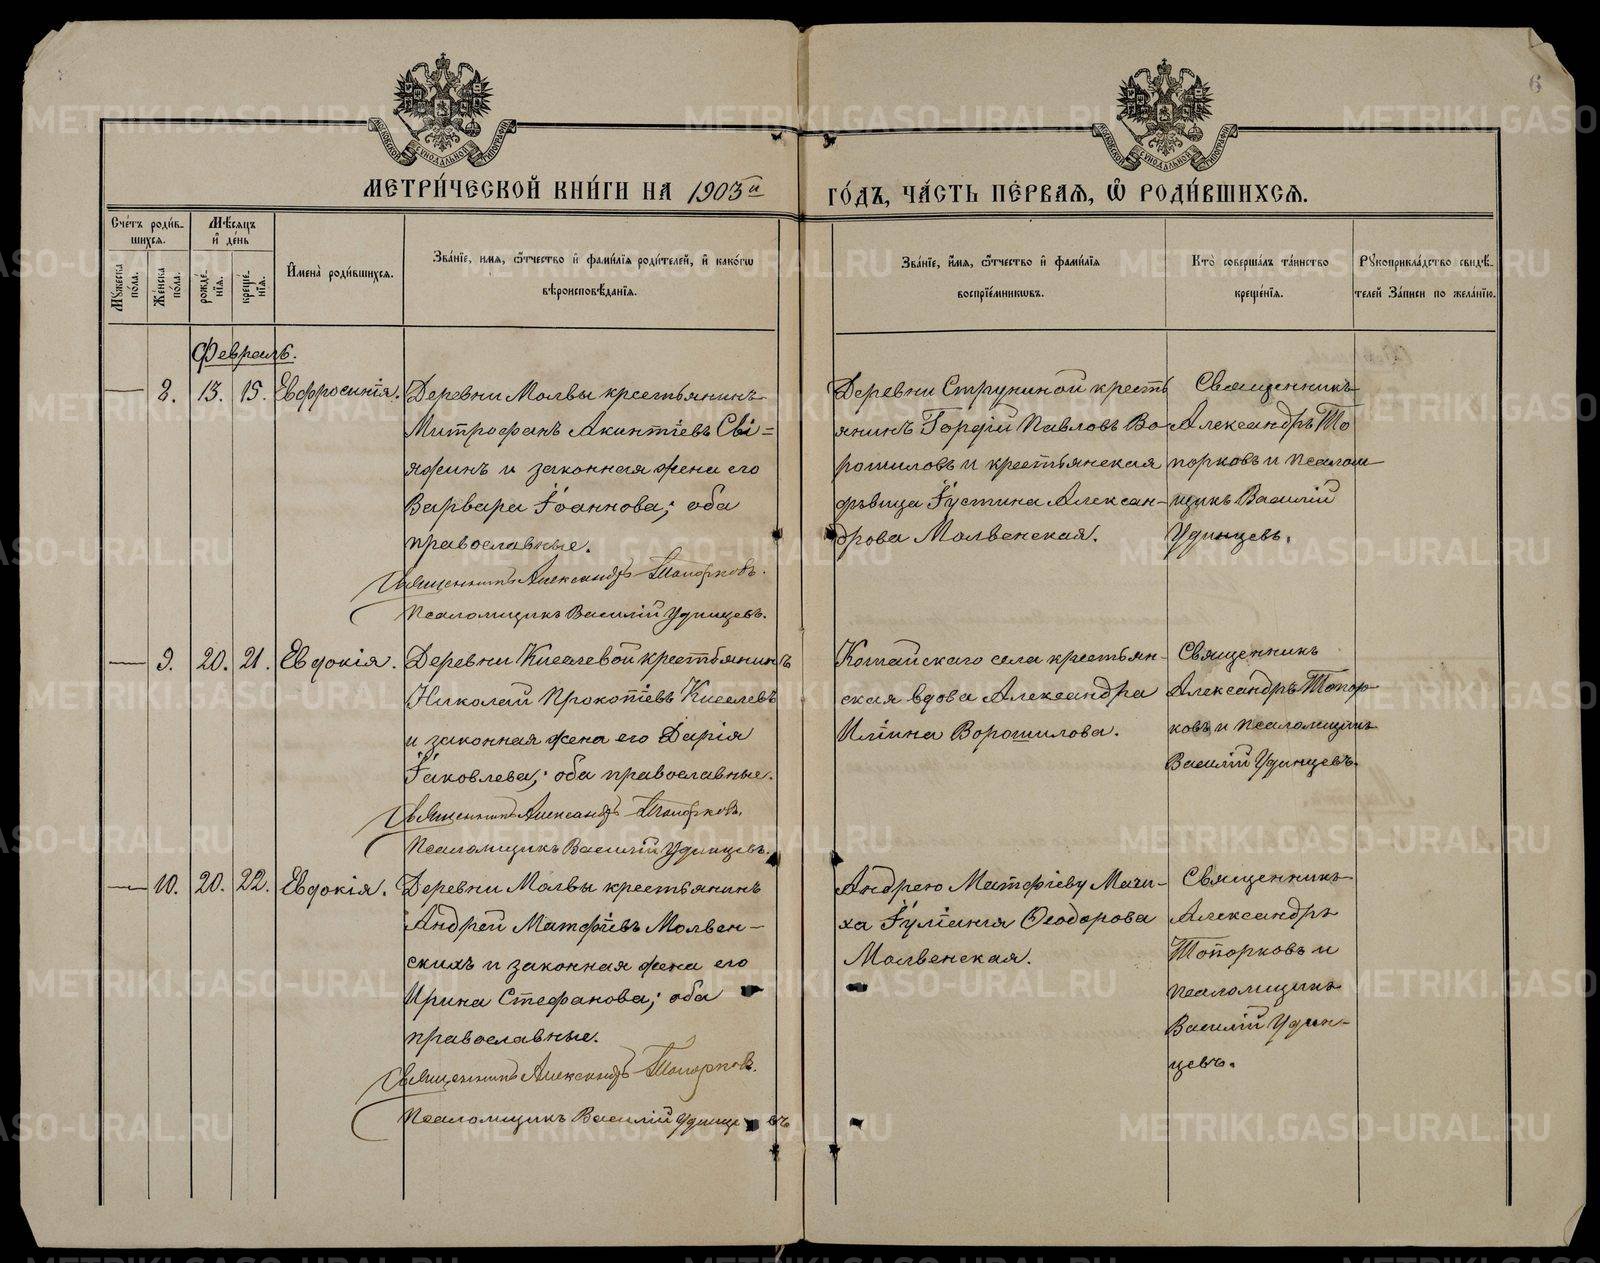 6
МОСКОВСКОЙ СѴНОДАЛЬНОЙ ТИПОГРАФІИ
МОСКОВСКОЙ СѴНОДАЛЬНОЙ ТИПОГРАФІИ
МЕТРИ́ЧЕСКОЙ КНИ́ГИ НА 1903й ГО́ДЪ, ЧА́СТЬ ПЕ́РВАЯ, Ѡ҆ РОДИ́ВШИХСЯ.
Сче́тъ роди́в-
шихся.
Мѣ́сяцъ
и҆ де́нь
Мꙋ́жеска по́ла.
Же́нска по́ла.
рожде́-нїя.
креще́-нїя.
И҆мена̀ роди́вшихся.
Зва́нїе, имя, ѻ҆́тчество и҆ фами́лїя роди́телей, и҆ како́гѡ
вѣроисповѣ́данїя.
Зва́нїе, и҆́мя, ѻ҆́тчество и҆ фами́лїя
воспрїе́мникѡвъ.
Кто̀ соверша́лъ та́инство
креще́нїя.
Рꙋкоприкла́дство свидѣ́-
телей За́писи по жела́нїю.
Февраль.
— 8. 13. 15. Евфросинія.
Деревни Молвы крестьянинъ
Митрофанъ Акинтіевъ Сві=
яжинъ и законная жена его
Варвара Іоаннова; оба
православные.
Священникъ Александръ Топорковъ.
Псаломщикъ Василій Удинцевъ.
Деревни Струниной кресть
янинъ Гордій Павловъ Во-
рошиловъ и крестьянская
дѣвица Іустина Алексан-
дрова Молвенская.
Священникъ
Александръ То
порковъ и псалом
щикъ Василій
Удинцевъ.
— 9. 20. 21. Евдокія.
Деревни Киселевой крестьянинъ
Николай Прокопіевъ Киселевъ
и законная жена его Дарія
Іаковлева; оба православные.
Священникъ Александръ Топорковъ.
Псаломщикъ Василій Удинцевъ.
Котайскаго села крестьян-
ская вдова Александра
Иліина Ворошилова.
Священникъ
Александръ Топор-
ковъ и псаломщикъ
Василій Удинцевъ.
— 10. 20. 22. Евдокія.
Деревни Молвы крестьянинъ
Андрей Матфіевъ Молвен-
скихъ и законная жена его
Ирина Стефанова; оба
православные.
Священникъ Александръ Топорковъ.
Псаломщикъ Василій Удинцевъ
Андрею Матфіеву Мачи-
ха Іуліанія Ѳеодорова
Молвенская.
Священникъ
Александръ
Топорковъ и
псаломщикъ
Василій Удин-
цевъ.
METRIKI.GASO-URAL.RU